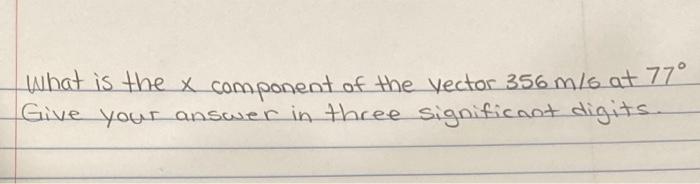 What is the x component of the vector 356 m/s at 77°
Give your answer in three significant digits.